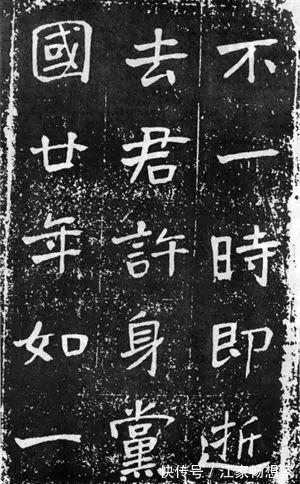 不一時即逝
去君許身黨
國廿年如一
快传号/江家物想家